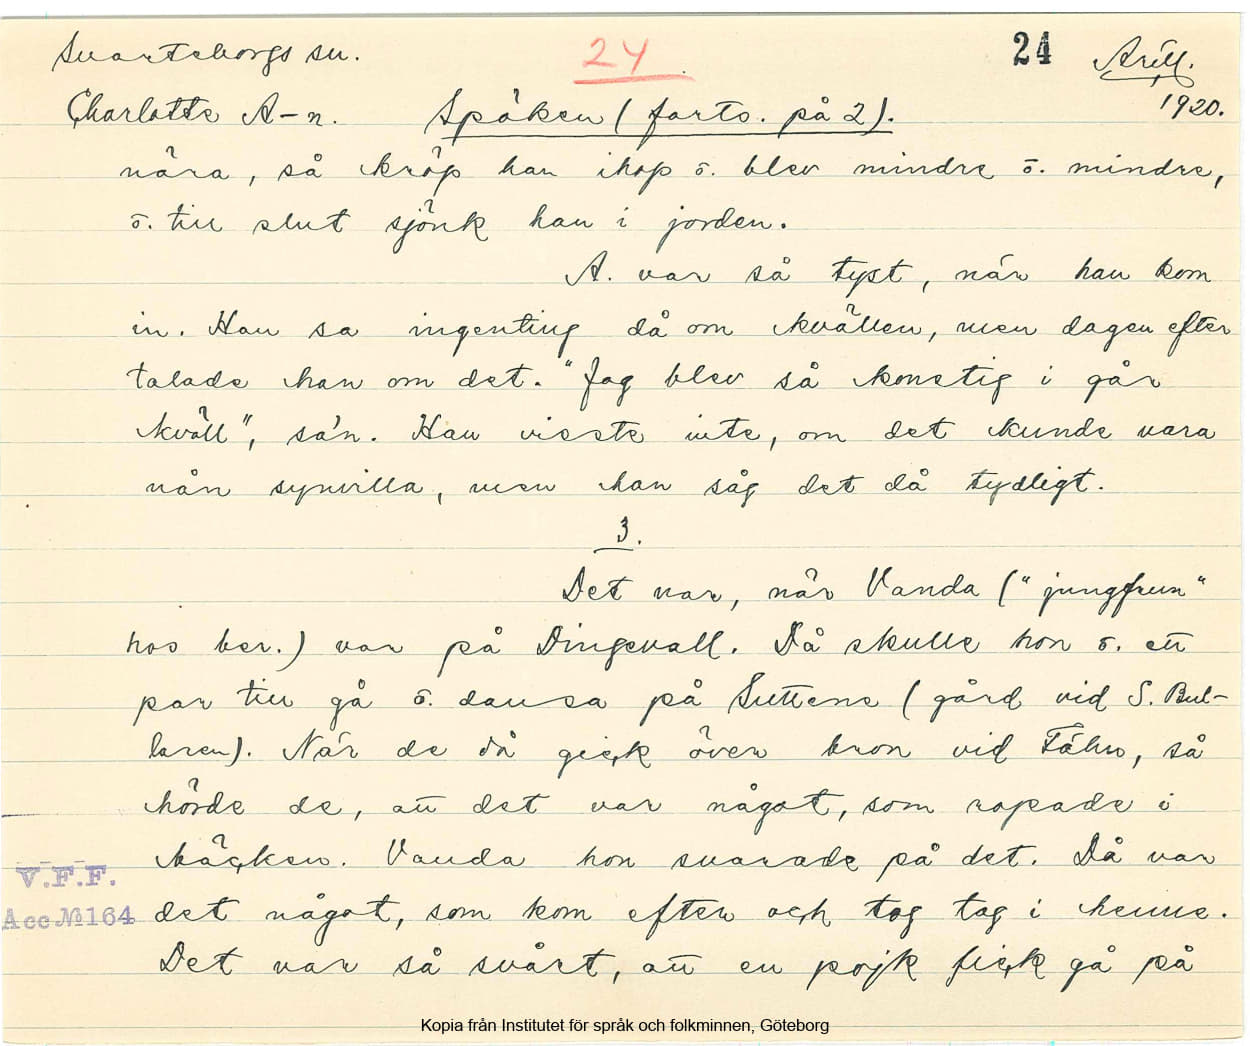 Svarteborgs sn. 24 24 Arill.
Charlotte A-n. Spöken (forts. på 2). 1920.
nära, så kröp han ihop o. blev mindre o. mindre,
o. till slut sjönk han i jorden.
A. var så tyst, när han kom
in. Han sa ingenting då om kvällen, men dagen efter
talade han om det. "Jag blev så konstig i går
kväll", sa'n. Han visste inte, om det kunde vara
nån synvilla, men han såg det då tydligt.
3.
Det var, när Vanda ("jungfrun"
hos ber.) var på Dingevall. Då skulle hon o. ett
par till gå o. dansa på Suttene (gård vid S. Bul-
laren). När de då gick över bron vid, så
hörde de, att det var något, som ropade i
bäcken. Vanda hon svarade på det. Då var
det något, som kom efter och tog tag i henne.
Det var så svårt, att en pojk fick gå på
V.F.F.
Acc № 164
Kopia från Institutet för språk och folkminnen, Göteborg